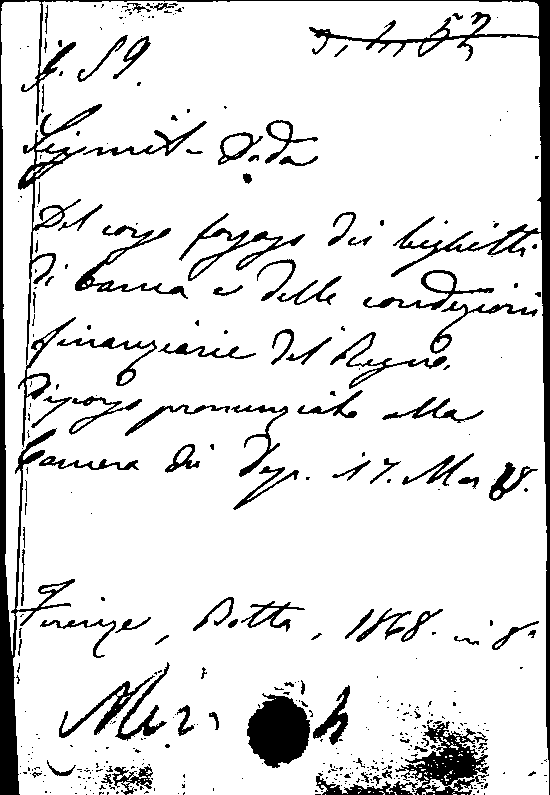 3, 4, 57
f. 59.
Sigmit-Doda
Del corso forzoso dei biglietti
di banca e delle condizioni
finanziarie del Regno.
Discorso pronunziato alla
Camera dei Dep. 17. Mar 68.
Firenze, Botta, 1868. in 8°